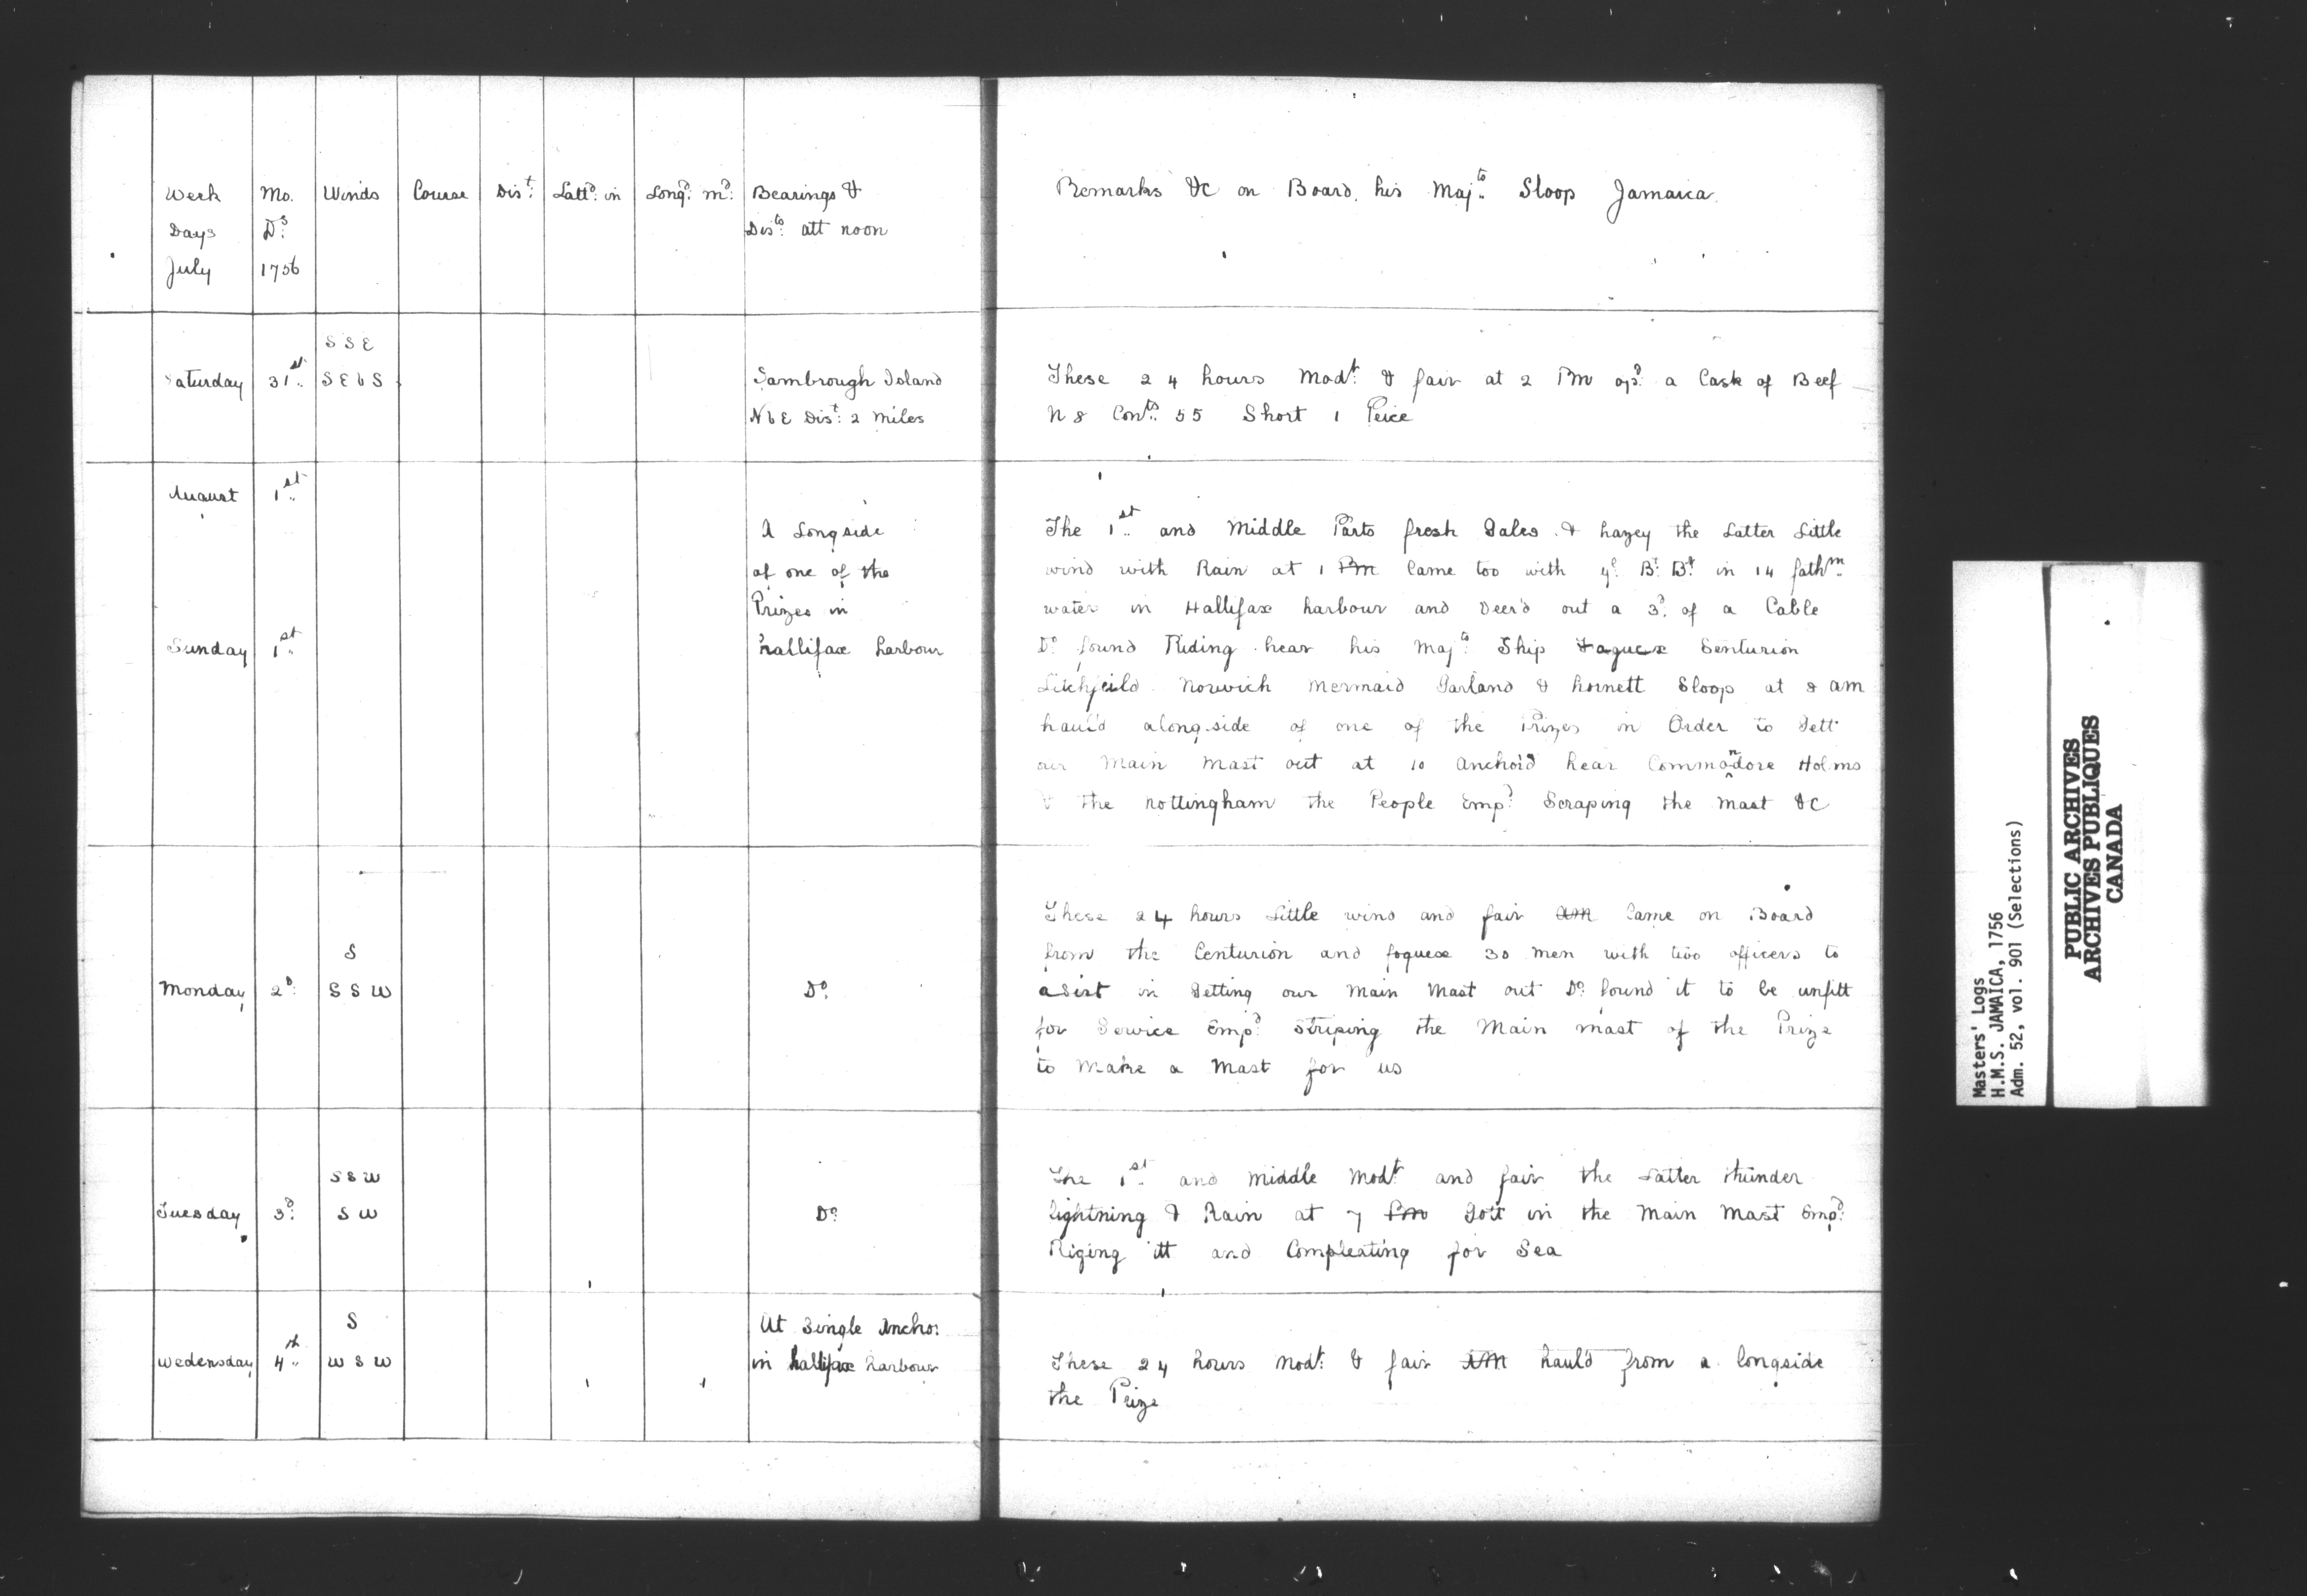 Week Mo. Winds Course Dist: Lattd: in Longd: md: Bearings &
Days Ds: Dists: att noon
July 1756
Remarks &c on Board his Majts: Sloop Jamaica.
S S E
Saturday 31st S E b S Sambrough Island
N b E Dist: 2 miles
These 24 hours Modt: & fair at 2 PM opd: a Cask of Beef
N 8 Conts: 55 Short 1 Peice
August 1st
A Longside
of one of the
Prizes in
Sunday 1st hallifax harbour
The 1st and Middle Parts fresh Gales & hazey the Latter Little
wind with Rain at 1 Pm Came too with ye Bt: Br: in 14 fathm
water in Hallifax harbour and Veer'd out a 3d: of a Cable
Do found Riding hear his Majts: Ship Faguex Senturion
Litchfeild Norwich Mermaid Garland & hornett Sloop at 8 am
haul'd along side of one of the Prizes in Order to Gett
our Main Mast out at 10 Anchor'd hear Commondore Holms
& the nottingham the People Empd: Scraping the Mast &c
S
Monday 2d: S S W Do
These 24 hours Little wind and fair AM Came on Board
from the Centurion and foguex 30 men with two officers to
asist in Getting our Main Mast out Do found it to be unfitt
for Service Empd: Striping the Main mast of the Prize
to Make a Mast for us
S S W
Tuesday 3d: S W Do
The 1st and middle Modt and fair the Latter thunder
lightning & Rain at 7 Pm Gott in the Main Mast Empd:
Riging itt and Compleating for Sea
S
Wedensday 4th W S W
At Single Anchor
in hallifax harbour
These 24 hours modt: & fair AM haul'd from a longside
the Prize
Masters' Logs
H.M.S. JAMAICA, 1756
Adm. 52, vol. 901 (Selections)
PUBLIC ARCHIVES
ARCHIVES PUBLIQUES
CANADA